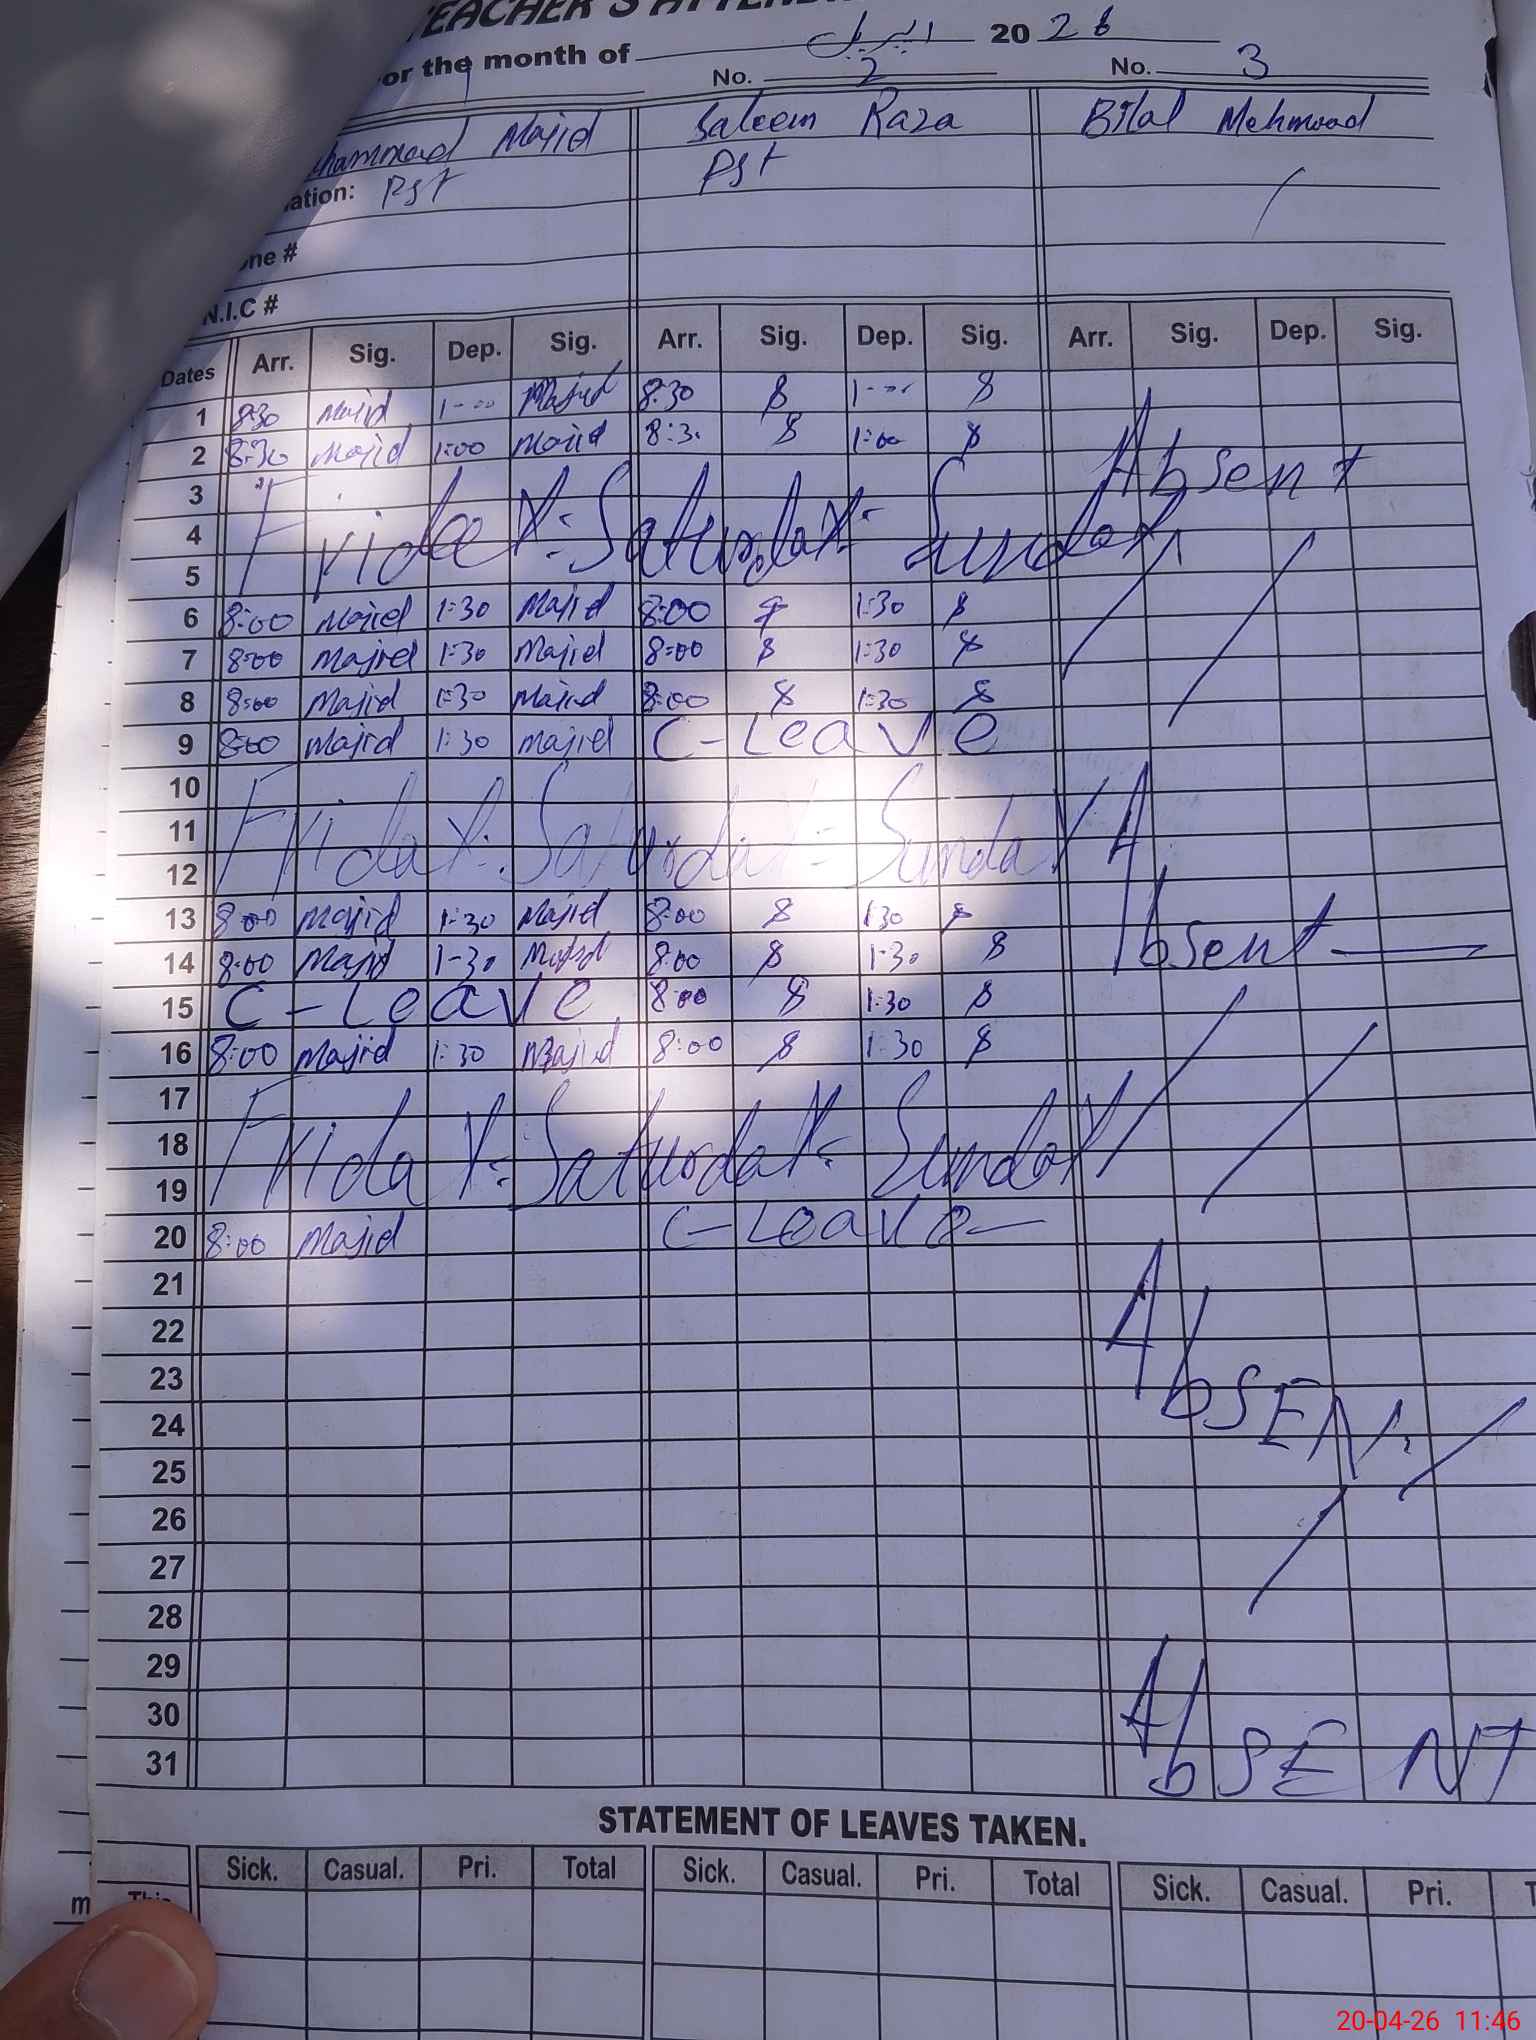 TEACHER'S ATTEND
or the month of اپریل 20 26
1 No. 2 No. 3
hammad Majid Saleem Raza Bilal Mehmood
ation: Pst Pst
one #
N.I.C #
Dates Arr. Sig. Dep. Sig. Arr. Sig. Dep. Sig. Arr. Sig. Dep. Sig.
1 8:30 Majid 1-00 Majid 8:30 1-00
2 8:30 Majid 1:00 Majid 8:30 1:00
Absent
3
4 Friday: Saturday: Sunday
5
6 8:00 Majid 1:30 Majid 8:00 1:30
7 8:00 Majid 1:30 Majid 8:00 1:30
8 8:00 Majid 1:30 Majid 8:00 1:30
9 8:00 Majid 1:30 Majid C-Leave
10
11 Friday: Saturday: Sunday
12
13 8:00 Majid 1:30 Majid 8:00 1:30
14 8:00 Majid 1-30 Majid 8:00 1:30 Absent
15 C-Leave 8:00 1:30
16 8:00 Majid 1:30 Majid 8:00 1:30
17
18 Friday: Saturday: Sunday
19
20 8:00 Majid C-Leave
21
22
23
24 AbSEN
25
26
27
28
29
30
31 AbSENT
STATEMENT OF LEAVES TAKEN.
Sick. Casual. Pri. Total Sick. Casual. Pri. Total Sick. Casual. Pri. T
m This
20-04-26 11:46